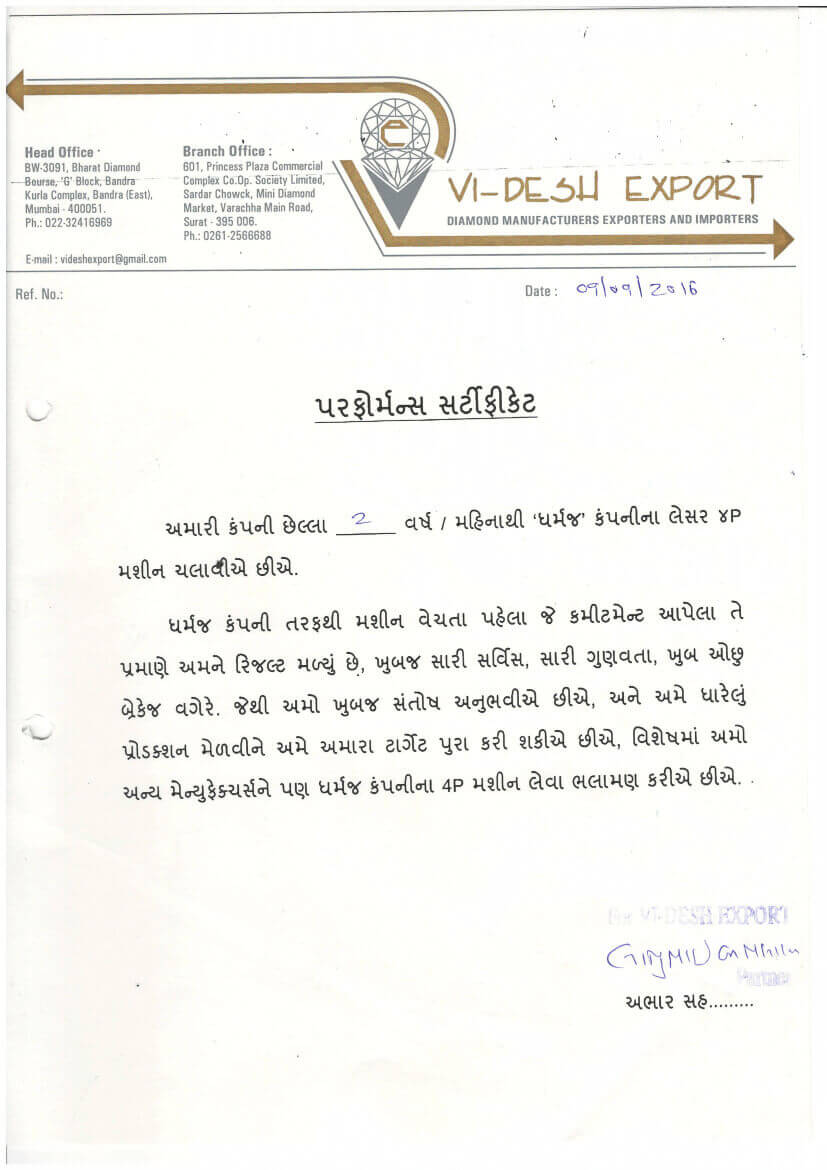 Head Office :
BW-3091, Bharat Diamond
Bourse, 'G' Block, Bandra
Kurla Complex, Bandra (East),
Mumbai - 400051.
Ph.: 022-32416969
E-mail : videshexport@gmail.com
Branch Office :
601, Princess Plaza Commercial
Complex Co.Op. Society Limited,
Sardar Chowck, Mini Diamond
Market, Varachha Main Road,
Surat - 395 006.
Ph.: 0261-2566688
VI-DESH EXPORT
DIAMOND MANUFACTURERS EXPORTERS AND IMPORTERS
Ref. No.:
Date : 09/09/2016
પરફોર્મન્સ સર્ટીફીકેટ
અમારી કંપની છેલ્લા 2 વર્ષ / મહિનાથી ‘ધર્મજ’ કંપનીના લેસર ૪P
મશીન ચલાવીએ છીએ.
ધર્મજ કંપની તરફથી મશીન વેચતા પહેલા જે કમીટમેન્ટ આપેલા તે
પ્રમાણે અમને રિજલ્ટ મળ્યું છે, ખુબજ સારી સર્વિસ, સારી ગુણવતા, ખુબ ઓછુ
બ્રેકેજ વગેરે. જેથી અમો ખુબજ સંતોષ અનુભવીએ છીએ, અને અમે ધારેલું
પ્રોડક્શન મેળવીને અમે અમારા ટાર્ગેટ પુરા કરી શકીએ છીએ, વિશેષમાં અમો
અન્ય મેન્યુફેક્ચર્સને પણ ધર્મજ કંપનીના 4P મશીન લેવા ભલામણ કરીએ છીએ.
For VI-DESH EXPORT
Partner
અભાર સહ.........